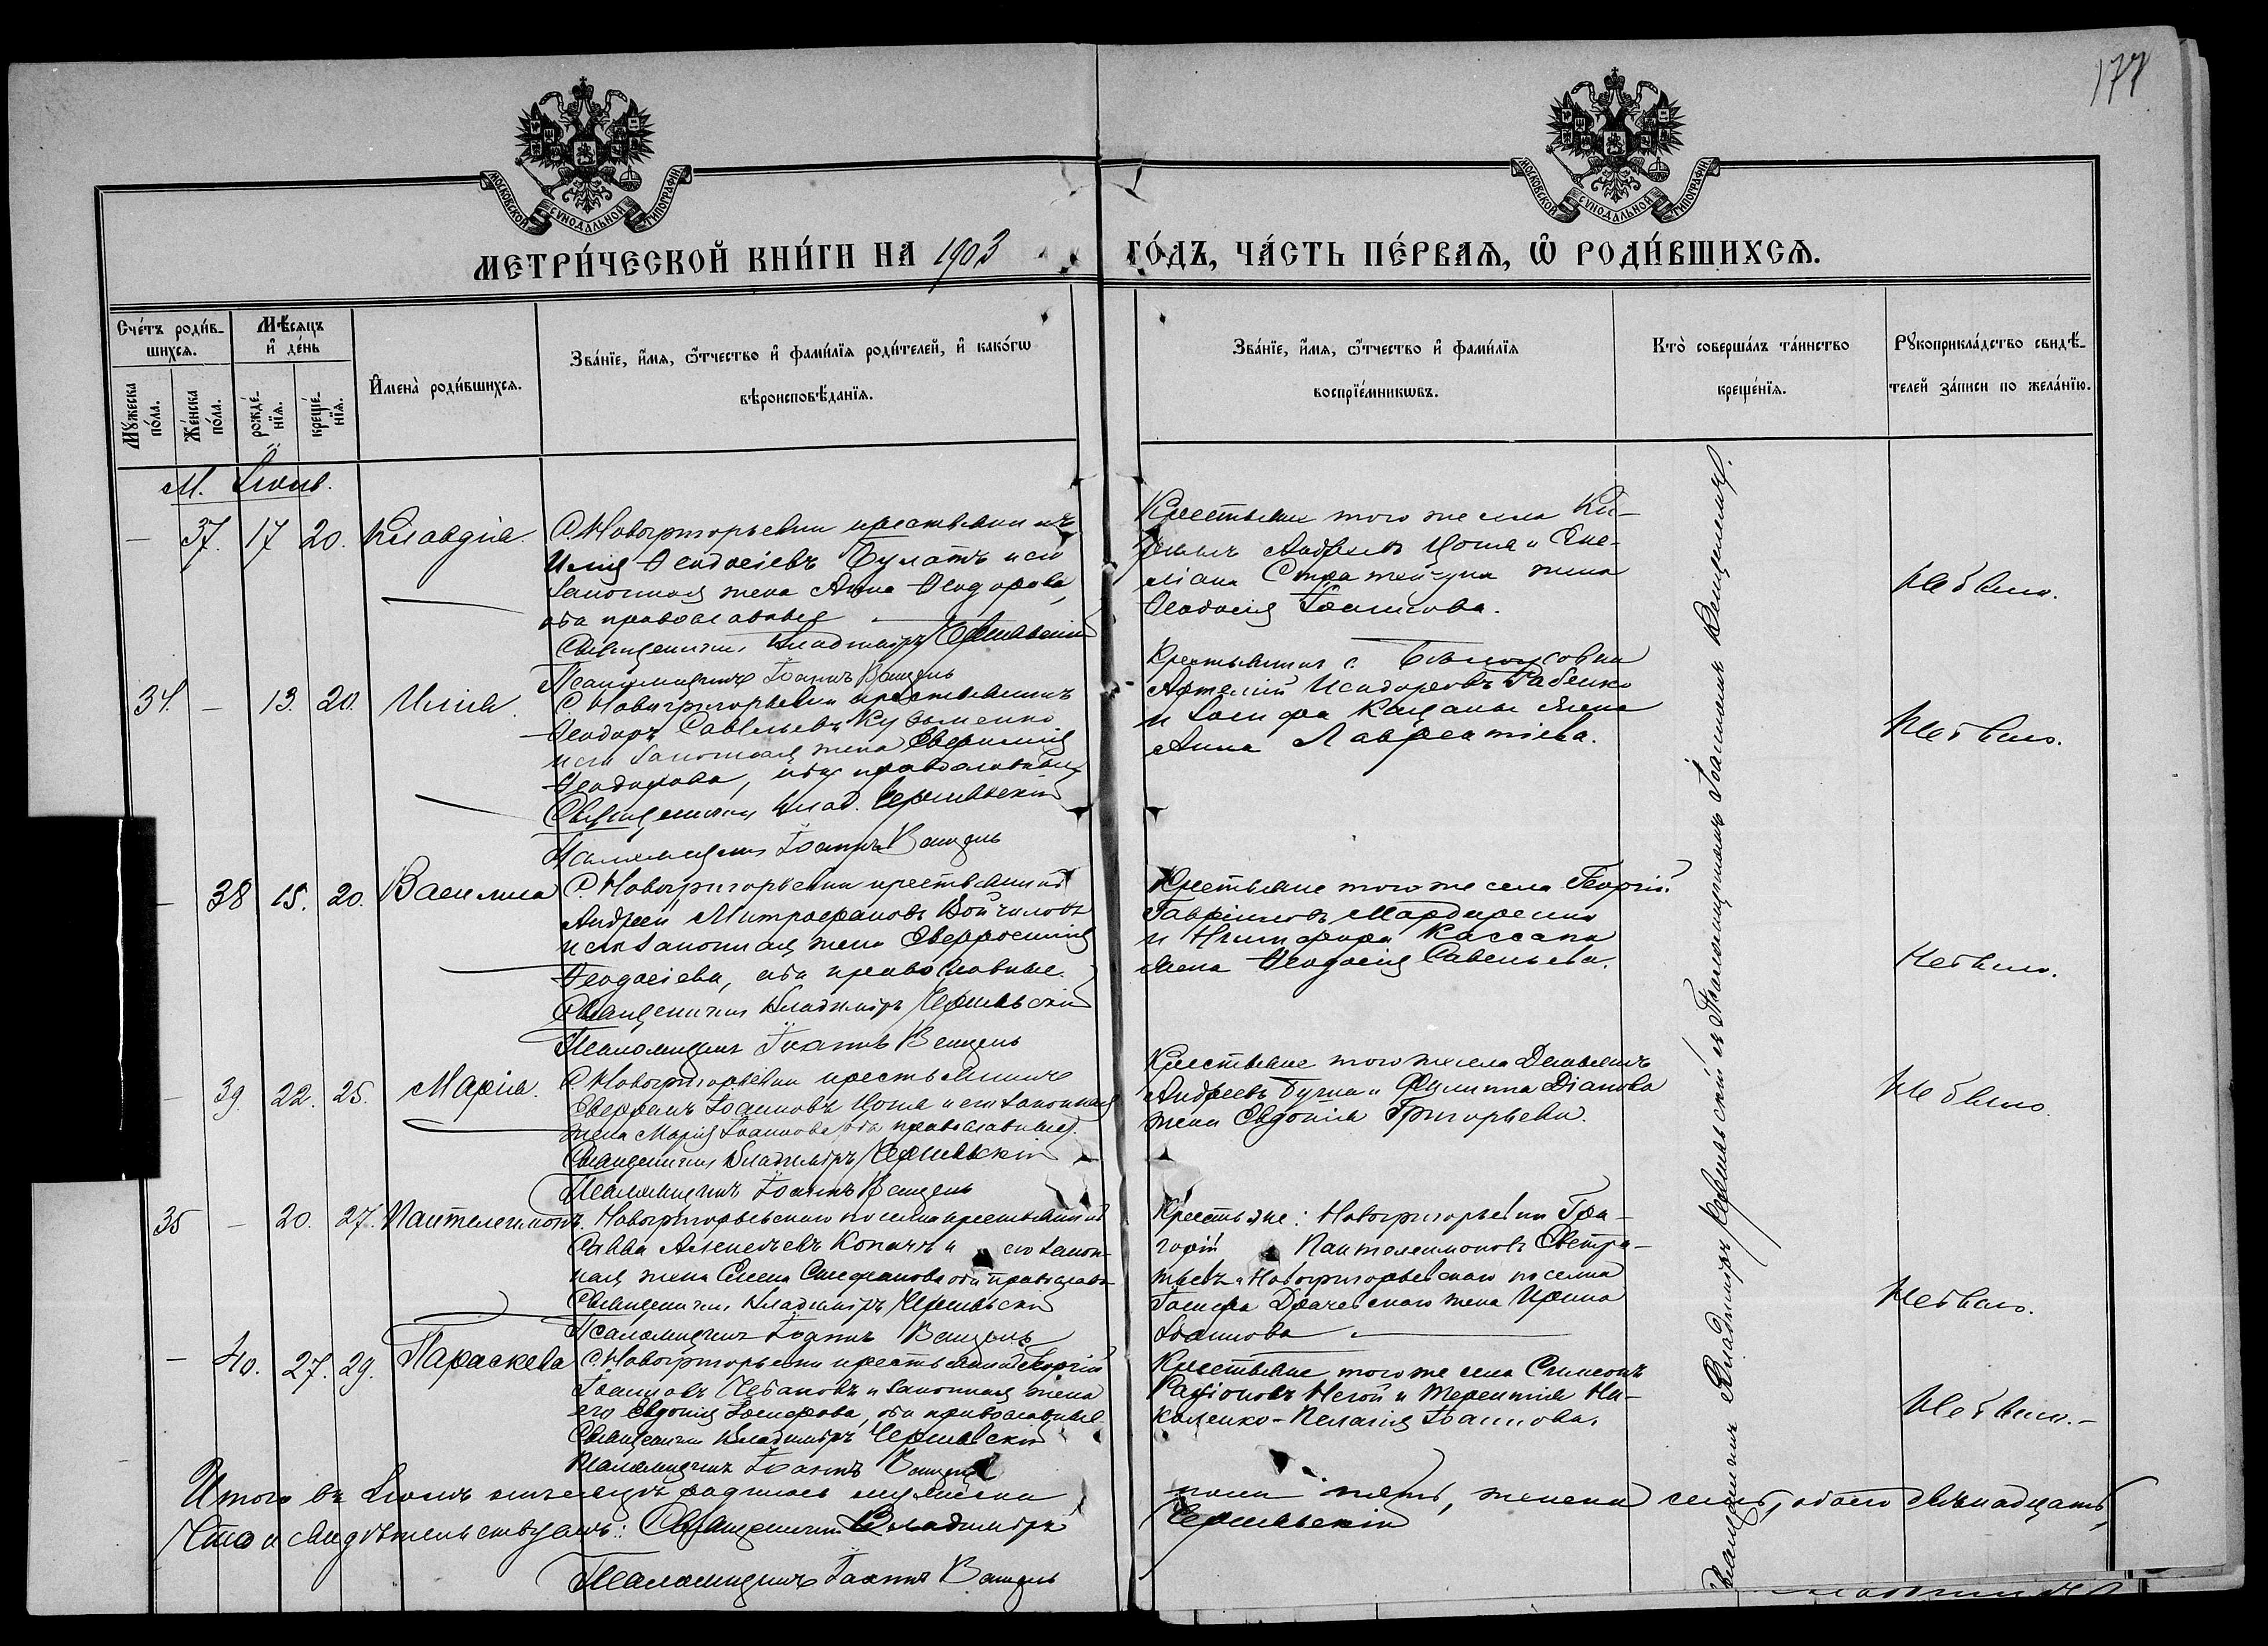 177
МОСКОВСКОЙ СѴНОДАЛЬНОЙ ТИПОГРАФІИ
МОСКОВСКОЙ СѴНОДАЛЬНОЙ ТИПОГРАФІИ
МЕТРИ́ЧЕСКОЙ КНИ́ГИ НА 1903 ГО́ДЪ, ЧА́СТЬ ПЕ́РВАѦ, Ѡ РОДИ́ВШИХСѦ.
Сче́тъ роди́в-
шихсѧ.
Мѣ́сѧцъ
и҆ де́нь
Мꙋ́жеска
по́ла.
Же́нска
по́ла.
рожде́-
нїѧ.
креще́-
нїѧ.
И҆мена̀ роди́вшихсѧ.
Зва́нїе, и҆́мѧ, ѻ҆́тчество и҆ фами́лїѧ роди́телей, и҆ како́гѡ
вѣроисповѣ́данїѧ.
Зва́нїе, и҆́мѧ, ѻ҆́тчество и҆ фами́лїѧ
воспрїе́мникѡвъ.
Кто̀ соверша́лъ та́инство
креще́нїѧ.
Рꙋкоприкла́дство свидѣ́-
телей за́писи по жела́нїю.
М. Іюнь.
— 37. 17 20. Клавдія.
С. Новогригорьевки крестьянинъ
Илія Ѳеодосіевъ Булатъ и его
законная жена Анна Ѳеодорова,
оба православные
Священникъ Владиміръ Чернявскій
Псаломщикъ Іоаннъ Ванцель
Крестьяне того же села
Андреевъ Цопа и
жена
Ѳеодосія Іоаннова.
Не было.
34. — 13. 20. Илія.
С. Новогригорьевки крестьянинъ
Ѳеодоръ Савельевъ Кузьменко
и его законная жена Евфимія
Ѳеодорова, оба православные
Священникъ Влад. Чернявскій
Псаломщикъ Іоаннъ Ванцель
Крестьянинъ с.
Исидоровъ Рабенко
и Іосифа жена
Анна Лаврентіева.
Не было.
— 38 15. 20. Василиса
С. Новогригорьевки крестьянинъ
Андрей Митрофановъ
и его законная жена Евфросинія
Ѳеодосіева, оба православные.
Священникъ Владиміръ Чернявскій
Псаломщикъ Іоаннъ Ванцель
Крестьяне того же села Георгій
Гавріиловъ
и Никифора Кассапа
жена Ѳеодосія Савельева.
Не было.
— 39. 22. 25. Марія.
С. Новогригорьевки крестьянинъ
Ефремъ Іоанновъ Цопа и его законная
жена Марія Іоаннова, оба православные.
Священникъ Владиміръ Чернявскій
Псаломщикъ Іоаннъ Ванцель
Крестьяне того же села Даміанъ
Андреевъ и Филиппа Діанова
жена Евдокія Григорьева.
Не было.
35 — 20. 27. Пантелеимонъ.
Новогригорьевскаго поселка крестьянинъ
Савва Алексѣевъ Копачъ и его закон-
ная жена Елена Стефанова оба правосл
Священникъ Владиміръ Чернявскій
Псаломщикъ Іоаннъ Ванцель
Крестьяне: Новогригорьевки Гри-
горій Пантелеимоновъ Евстра-
тьевъ и Новогригорьевскаго поселка
Іосифа Драчевскаго жена Ирина
Іоаннова
Не было.
— 40. 27. 29. Параскева
С. Новогригорьевки крестьянинъ Георгій
Іоанновъ Чебановъ и законная жена
его Евдокія Іосифова, оба православные
Священникъ Владиміръ Чернявскій
Псаломщикъ Іоаннъ Ванцель
Крестьяне того же села Симеонъ
Родіоновъ Негой и Терентія Ни-
коленко - Пелагія Іоаннова.
Не было.
Священникъ Владиміръ Чернявскій съ Псаломщикомъ Іоанномъ Ванцелемъ.
Итого въ Іюнѣ мѣсяцѣ родилось мужеска пола пять, женска семь, обоего двѣнадцать,
Что и свидѣтельствуемъ: Священникъ Владиміръ Чернявскій
Псаломщикъ Іоаннъ Ванцель